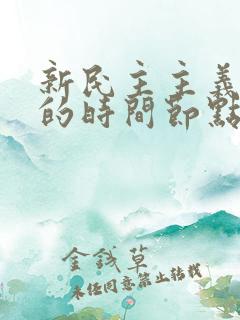 新民主主義
的時間節點
金錢草
未經同意禁止轉載